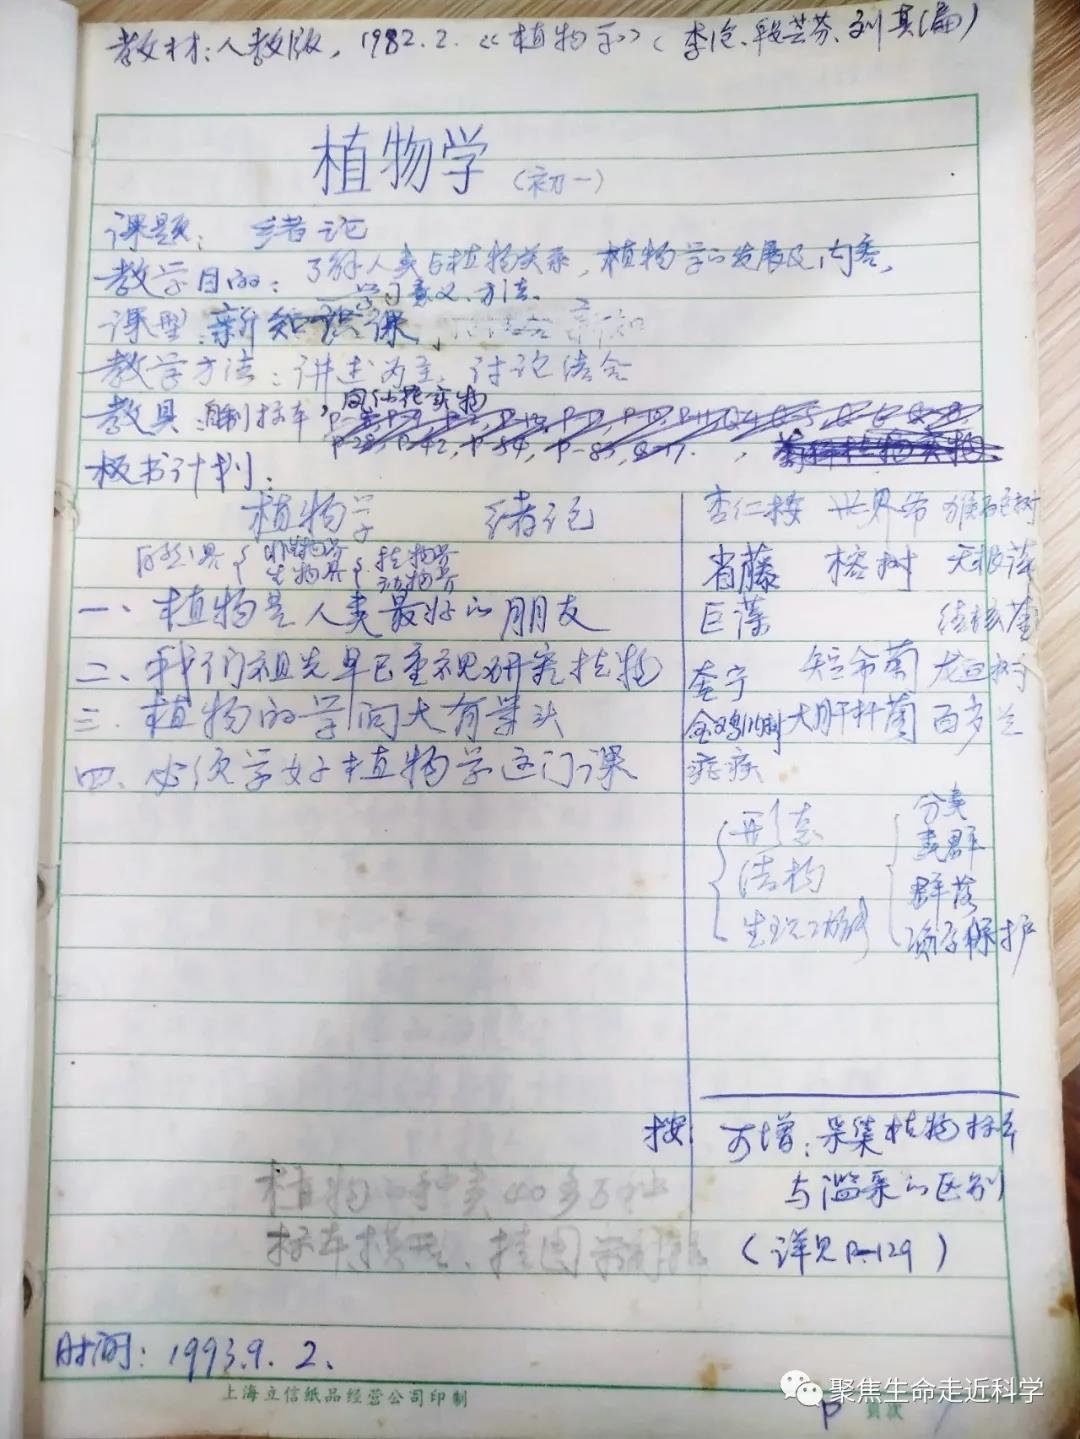 教材:人教版,1982.2.《植物学》(李沧、段芸芬、刘真编)
植物学(初一)
课题:绪论
教学目的:了解人类与植物关系,植物学的发展及内容,
学习意义、方法。
课型:新知识课
教学方法:讲述为主,讨论结合
教具:自制标本,凤仙花实物
板书计划:
植物学 绪论
自然界{非生物界 生物界{植物界 动物界
一、植物是人类最好的朋友
二、我们祖先早已重视研究植物
三、植物的学问大有学头
四、必须学好植物学这门课
杏仁桉 世界爷 猴面包树
省藤 榕树 无根萍
巨藻 结核菌
奎宁 短命菊 龙血树
金鸡纳树 大肠杆菌 百岁兰
疟疾
{形态 结构 生理功能
{分类 类群 群落 资源保护
按 可增:采集植物标本
与滥采的区别
(详见P-129)
植物的种类40多万种
标本模型、挂图
时间:1993.9.2.
上海立信纸品经营公司印制
P 页次 1
聚焦生命走近科学